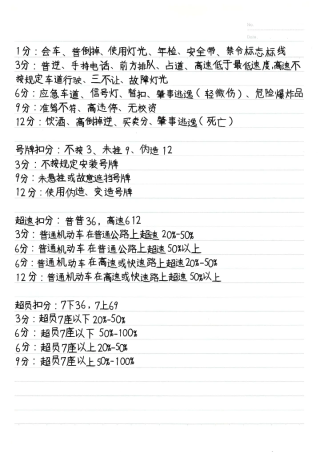 1分：会车、普倒掉、使用灯光、年检、安全带、禁令标志标线
3分：普逆、手持电话、前方排队、占道、高速低于最低速度,高速不
按规定车道行驶、三不让、故障灯光
6分：应急车道、信号灯、暂扣、肇事逃逸（轻微伤）、危险爆炸品
9分：准驾不符、高速停、无校资
12分：饮酒、高倒逆、买卖分、肇事逃逸（死亡）
号牌扣分：不按3、未挂9、伪造12
3分：不按规定安装号牌
9分：未悬挂或故意遮挡号牌
12分：使用伪造、变造号牌
超速扣分：普普36，高速612
3分：普通机动车在普通公路上超速20%-50%
6分：普通机动车在普通公路上超速50%以上
6分：普通机动车在高速或快速路上超速20%-50%
12分：普通机动车在高速或快速路上超速50%以上
超员扣分：7下36，7上69
3分：超员7座以下20%-50%
6分：超员7座以下50%-100%
6分：超员7座以上20%-50%
9分：超员7座以上50%-100%